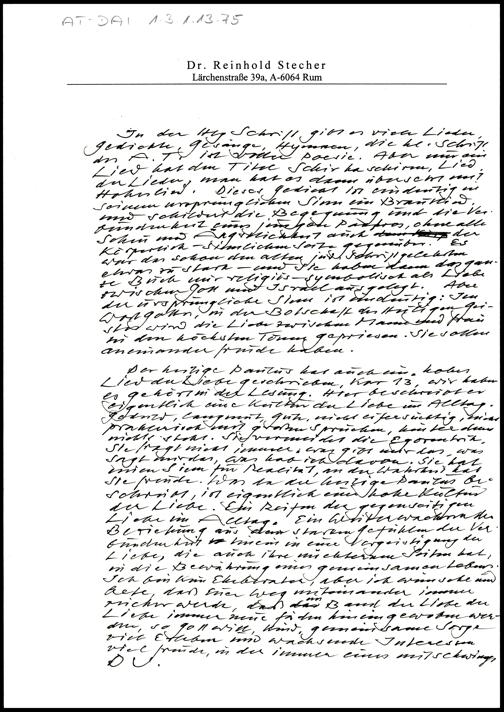 AT-DAI 1.3.1.13.75
Dr. Reinhold Stecher
Lärchenstraße 39a, A-6064 Rum
In der Hlg Schrift gibt es viele Lieder,
Gedichte, Gesänge, Hymnen, die hl. Schrift
des A.T. ist voller Poesie. Aber nur ein
Lied hat den Titel Schir haschirim, Lied
der Lieder, man hat es dann übersetzt mit
Hohes Lied. Dieses Gedicht ist eindeutig in
seinem ursprünglichen Sinn ein Brautlied
und schildert die Begegnung und die Ver-
bundenheit eines jungen Paares, ohne alle
Scheu und Ängstlichkeit auch der
körperlich-sinnlichen Seite gegenüber. Es
war das schon den alten jüd. Schriftgelehrten
etwas zu stark – und sie haben dann das gan-
ze Buch nur religiös-symbolisch als Liebe
zwischen Gott und Israel ausgelegt. Aber
der ursprüngliche Sinn ist eindeutig: Im
Wort Gottes, in der Botschaft des Heiligen Gei-
stes wird die Liebe zwischen Mann und Frau
in den höchsten Tönen gepriesen. Sie sollen
aneinander Freude haben.
Der heilige Paulus hat auch ein hohes
Lied der Liebe geschrieben, Kor 13, wir haben
es gehört in der Lesung. Hier beschreibt er
eigentlich eine Kultur der Liebe im Alltag.
Geduld, Langmut, Güte, nicht eifersüchtig, nicht
prahlerisch mit großen Sprüchen, hinter denen
nichts steht. Sie vermeidet die Egozentrik,
sie fragt nicht immer, was gibt mir das, was
sagt mir das, was hab ich davon. Sie hat
einen Sinn für Realität, an der Wahrheit hat
sie Freude. Was da der heilige Paulus be-
schreibt, ist eigentlich eine hohe Kultur
der Liebe. Ein Reifen der gegenseitigen
Liebe im Alltag. Ein Weiterwachsen der
Beziehung aus dem starken Gefühl der Ver-
bundenheit hinein in eine Vergeistigung der
Liebe, die auch ihre nüchternen Seiten hat,
in die Bewährung eines gemeinsamen Lebens.
Ich bin kein Eheberater, aber ich wünsche und
bete, dass Euer Weg miteinander immer
reicher werde, dass in das Band der Liebe der
Liebe immer neue Fäden hineingewoben wer-
den, so Gott will, Kind, gemeinsame Sorge
viel Erleben und wachsende Interessen
viel Freude, in der immer eines mitschwingt
D J.